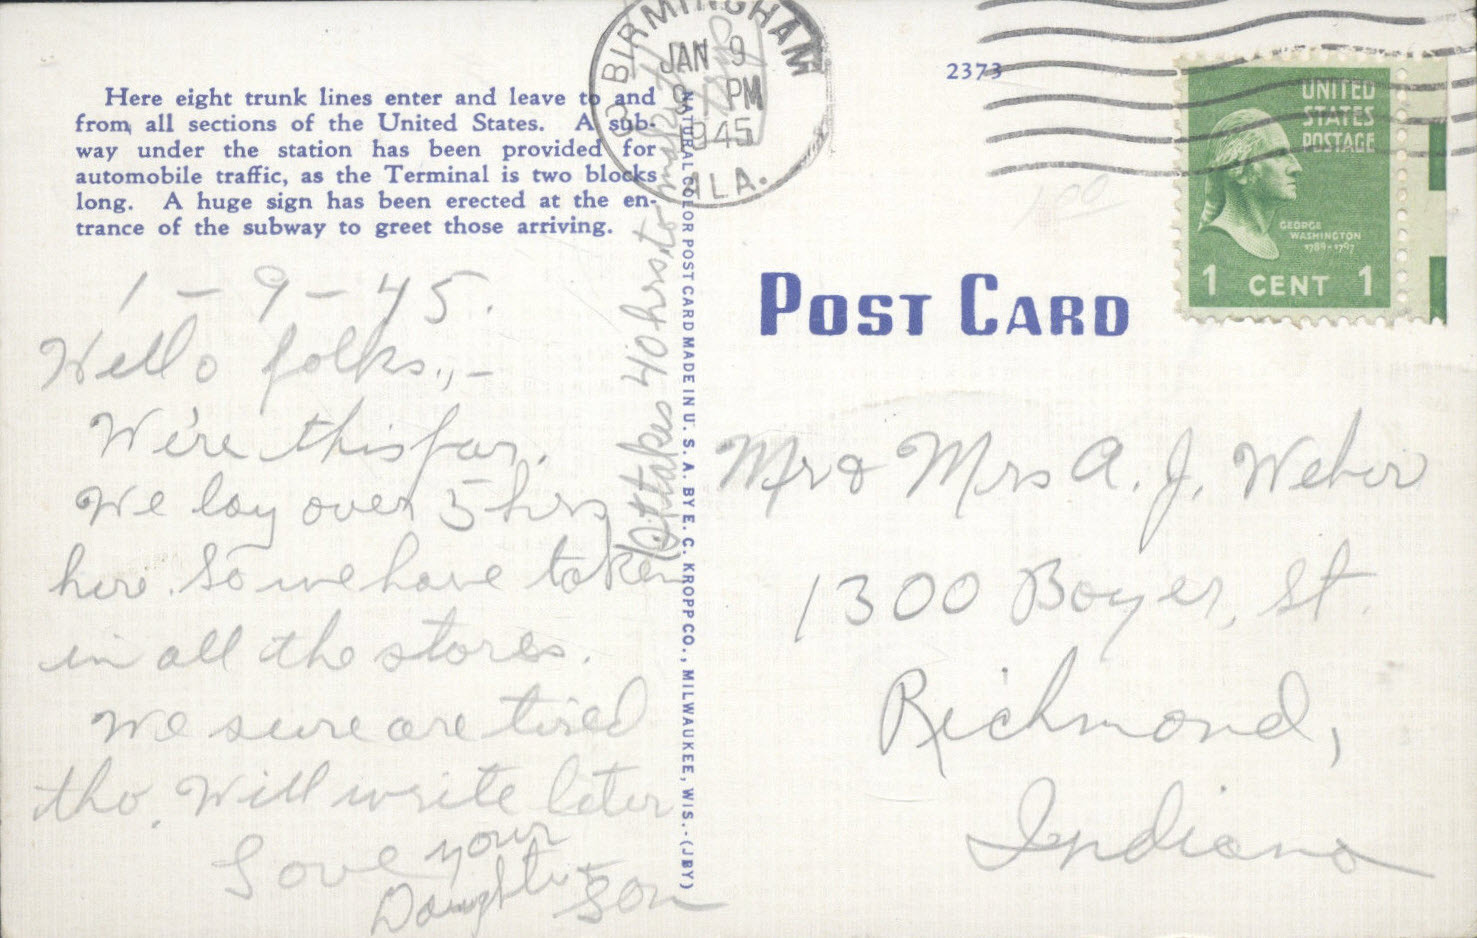 Here eight trunk lines enter and leave to and
from all sections of the United States. A sub-
way under the station has been provided for
automobile traffic, as the Terminal is two blocks
long. A huge sign has been erected at the en-
trance of the subway to greet those arriving.
1-9-45.
Hello folks.,-
We're this far.
We lay over 5 hrs
here. So we have taken
in all the stores.
We sure are tired
tho. Will write later
Love your
Daughter + Son
It takes 40 hrs. to make
NATURAL COLOR POST CARD MADE IN U. S. A. BY E. C. KROPP CO., MILWAUKEE, WIS.-(JBY)
BIRMINGHAM
JAN 9
PM
1945
ALA.
2373
UNITED
STATES
POSTAGE
GEORGE
WASHINGTON
1789-1797
1 CENT 1
POST CARD
Mr & Mrs A. J. Weber
1300 Boyer, St.
Richmond,
Indiana